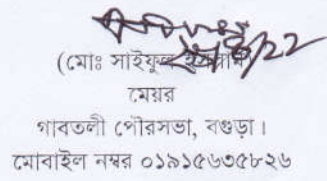 ২৭/৪/২২
(মোঃ সাইফুল ইসলাম)
মেয়র
গাবতলী পৌরসভা, বগুড়া।
মোবাইল নম্বর ০১৯১৫৬৩৫৮২৬